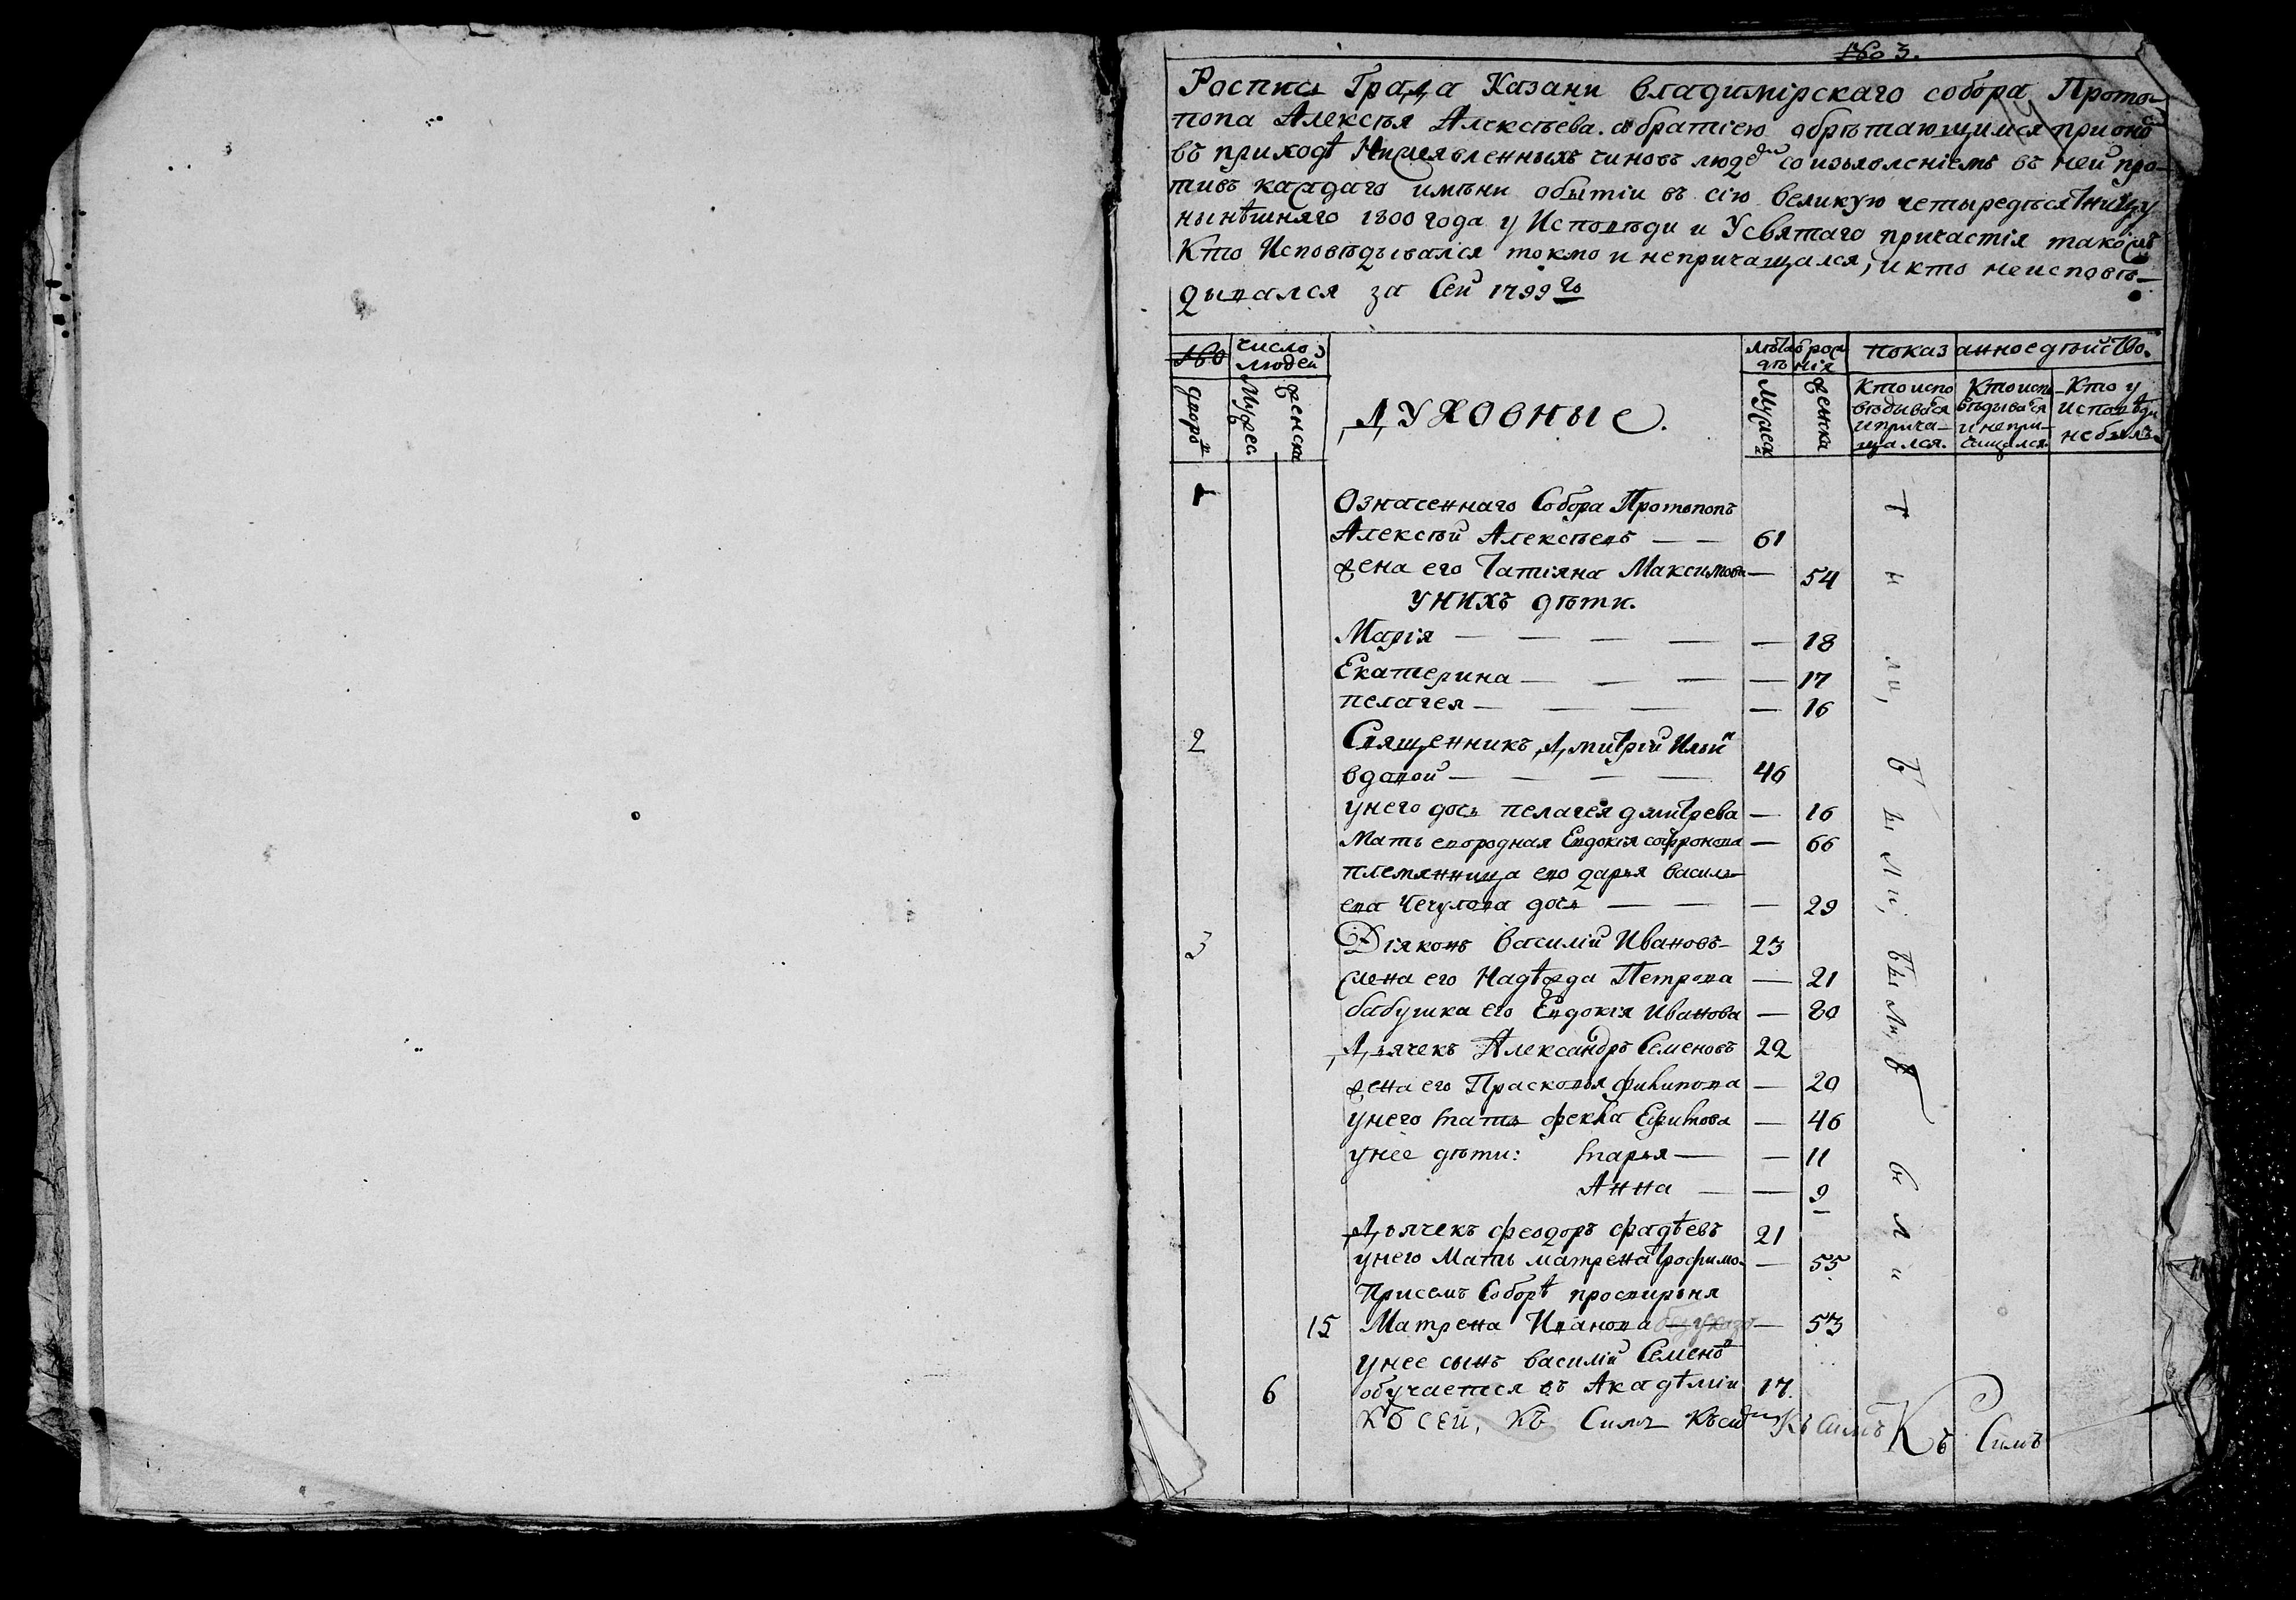 1803.
Роспись Града Казани Владимірскаго собора Прото-
попа Алексѣя Алексѣева. съ братіею обрѣтающимся при ономъ
въ приходѣ Нижеявленныхъ чиновъ людей со изъявленіемъ въ ней про-
тивъ каждаго имѣни обытіи въ сію великую четыредесятницу
нынѣшняго 1800 года у Исповѣди и У святаго причастія такожъ
Кто Исповѣдывался токмо и непричащался, и кто неисповѣ-
дывался за Сей 1799го
число людей
лѣта рожденія
показанное дѣйство.
дворовъ
Мужес.
женска
Духовные.
Мужеск
женска
Кто испо
вѣдывался
и прича-
щался.
Кто испо
вѣдывался
и непри-
чащался
Кто у
исповѣди
не былъ.
1
Означеннаго Собора Протопопъ
Алексѣй Алексѣевъ — — 61
жена его Татіяна Максимова — 54
у нихъ дѣти.
Марія — — — — — 18
Екатерина — — — — 17
пелагея — — — — — 16
2 Священникъ Дмитрій Ильин
вдовой — — — — 46
унего дочь пелагея дмитрева — 16
Мать ево родная Евдокія софронова — 66
племянница ево дарья василь-
ева Чечулова дочь — — — 29
3 Діяконъ Василій Ивановъ — 23
жена его Надѣжда Петрова — 21
бабушка его Евдокія Иванова — 80
Дьячекъ Александръ Семеновъ 22
жена его Прасковья филипова — 20
унего мать фекла Ефимова — 46
унее дѣти: марья — — 11
Анна — — 9
Дьячекъ феодоръ фадѣевъ 21
унего Мать матрена трофимо. — 55
При семъ Соборѣ просвирьня
15 Матрена Иванова — 53
унее сынъ василій Семенов
6 обучается въ Академіи 17.
Къ сей, Къ Симъ Къ сей Къ Симъ Къ Симъ